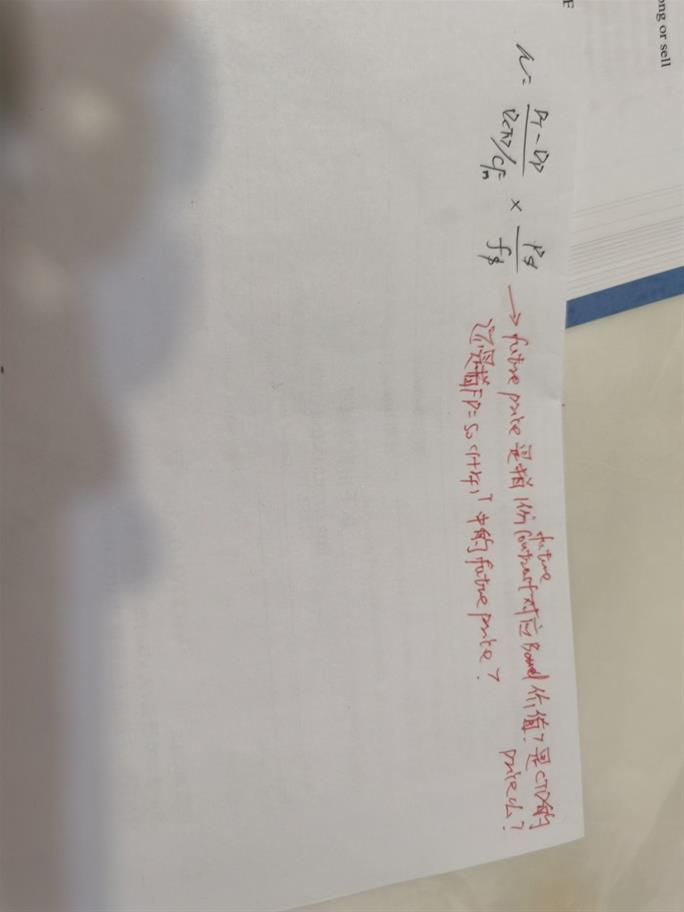 ong or sell
F
N = \frac{D_T - D_P}{D_{CTD}/CF_n} × \frac{P_$}{f_$} → future price 是指1份future contract对应Bond价值？是CTD的price吗？
还是指FP=S₀(1+rf)^T 中的future price？